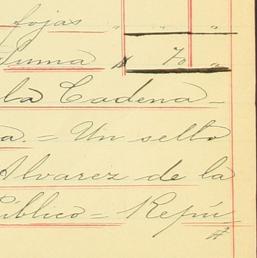 fojas " " "
Suma $ 70 "
la Cadena-
a.= Un sello
Alvarez de la
úblico= Repú
#